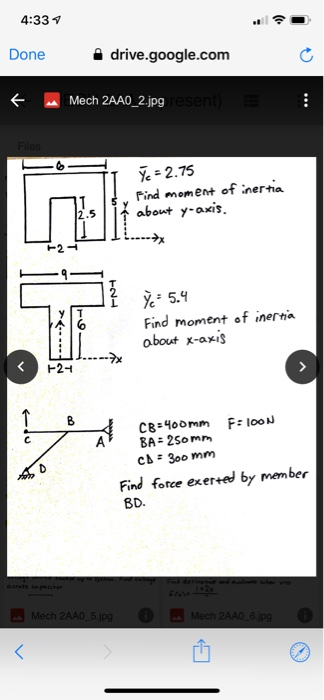 4:33
Done
drive.google.com
Mech 2AA0_2.jpg
Files
6
ȳc = 2.75
Find moment of inertia
about y-axis.
2.5
5
y
x
2
9
2
ȳc = 5.4
y
6
Find moment of inertia
about x-axis
x
2
B
CB=400mm F=100N
C
A
BA=250mm
CD=300mm
D
Find force exerted by member
BD.
Mech 2AA0_5.jpg
Mech 2AA0_6.jpg